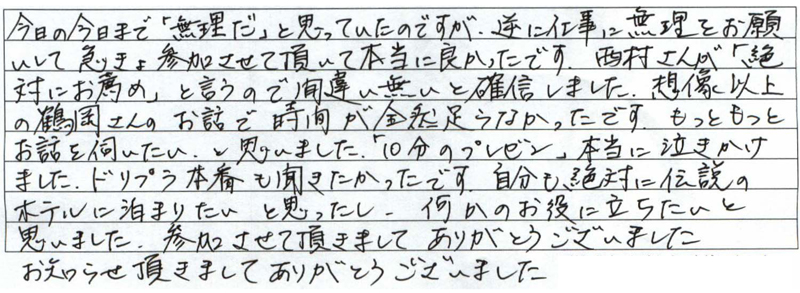 今日の今日まで「無理だ」と思っていたのですが、逆に仕事に無理をお願
いして急きょ参加させて頂いて本当に良かったです。西村さんが「絶
対にお薦め」と言うので間違い無いと確信しました。想像以上
の鶴岡さんのお話で時間が全然足らなかったです。もっともっと
お話を伺いたい、と思いました。「10分のプレゼン」本当に泣きかけ
ました。ドリプラ本番も聞きたかったです。自分も絶対に伝説の
ホテルに泊まりたいと思ったし、何かのお役に立ちたいと
思いました。参加させて頂きましてありがとうございました
お知らせ頂きましてありがとうございました